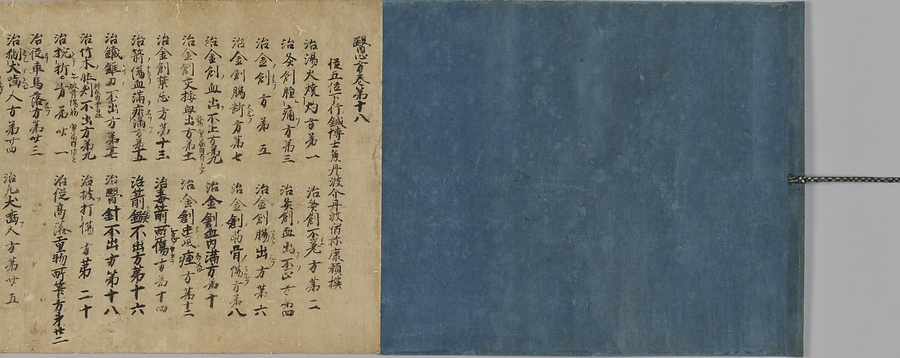 醫心方卷第十八
從五位下行鍼博士兼丹波介丹波宿祢康頼撰
治湯火燒灼方第一 治灸創不差方第二
治灸創腫痛方第三 治灸創血出不止方第四
治金創方第五 治金創腸出方第六
治金創腸斷方第七 治金創筋骨傷方第八
治金創血出不止方第九 治金創血內滿方第十
治金創交接血出方第十一 治金創中風痙方第十二
治金創禁忌方第十三 治毒箭所傷方第十四
治箭傷血漏瘀滿方第十五 治箭鏃不出方第十六
治鐵錐刀不出方第十七 治醫針不出方第十八
治竹木壯刺不出方第十九 治被打傷方第二十
治捥折方第廿一 治從高落重物所笮方第廿二
治從車馬落方第廿三
治猘犬嚙人方第廿四 治凡犬嚙人方第廿五